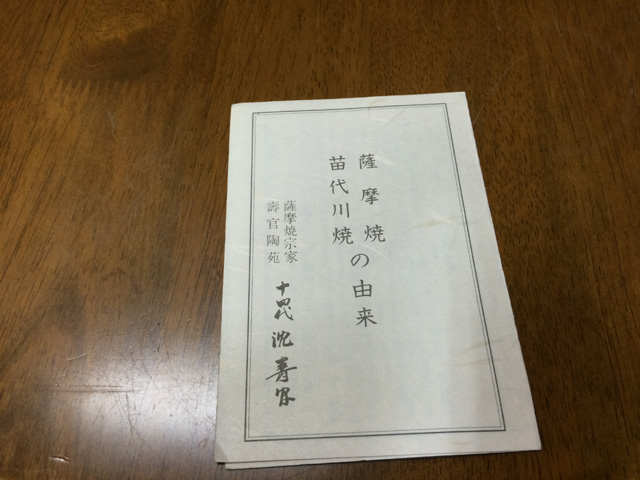 薩摩焼
苗代川焼
の由来
薩摩焼宗家
壽官陶苑
十四代 沈壽官